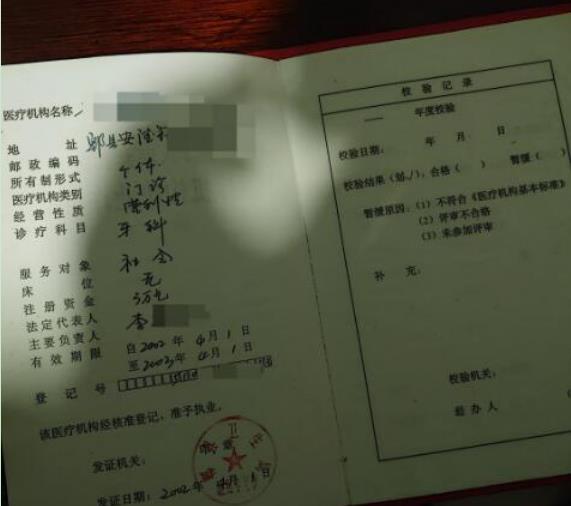 医疗机构名称
地址 郫县安德
邮政编码
所有制形式 个体
医疗机构类别 门诊
经营性质 营利性
诊疗科目 牙科
服务对象 社会
床位 无
注册资金 3万元
法定代表人 李
主要负责人
有效期限 自2002年4月1日
至2003年4月1日
登记号
该医疗机构经核准登记，准予执业。
发证机关：
发证日期：2002年4月1日
校验记录
年度校验
校验日期： 年 月 日
校验结果（划√），合格（ ） 暂缓（
暂缓原因：（1）不符合《医疗机构基本标准》
（2）评审不合格
（3）未参加评审
补充：
校验机关：
经办人